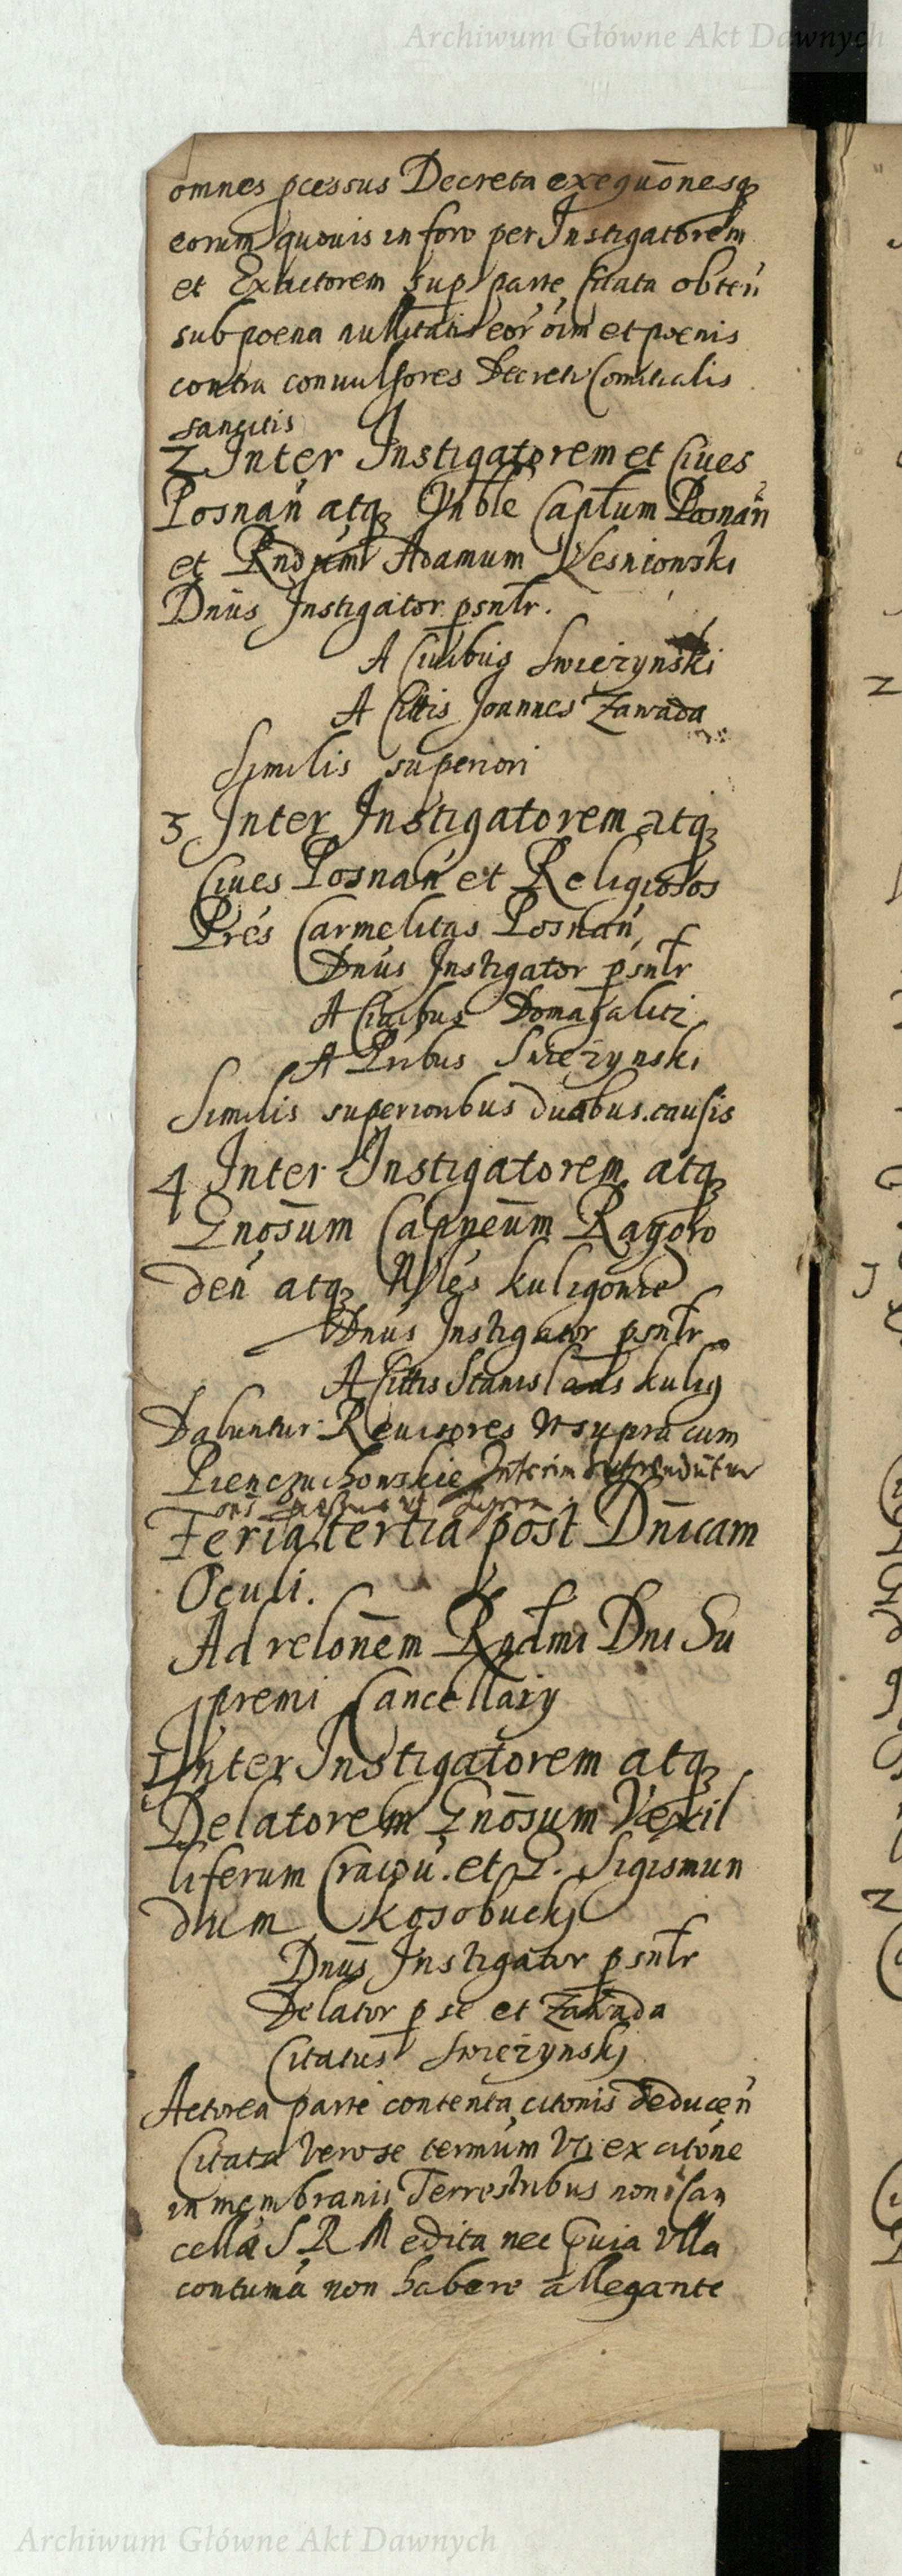 Archiwum Główne Akt Dawnych
omnes pcessus Decreta exequōnesq
eorum quouis in foro per Instigatorem
et Exactorem sup parte Citata obten
sub poena nullitatis eor oīm et poenis
contra convulsores Decreti Comitialis
sancitis
2 Inter Instigatorem et Ciues
Posnań atq Vnble Capłum Posnań
et Rndum Adamum Lesniowski
Dnūs Instigator psnłr.
A Ciuibus Swiezynski
A Cittis Joannes Zawada
Similis superiori
3 Inter Instigatorem atq
Ciues Posnań et Religiosos
Prēs Carmelitas Posnań
Dnūs Instigator psnłr
A Ciuibus Domagalicz
A Pribus Swiezynski
Similis superioribus duabus causis
4 Inter Instigatorem atq
Gnōsum Capneūm Ragoro
deń atq Nlēs Kuligowie
Dnūs Instigator psnłr
A Cittis Stanislaus Kulig
Dabuntur Reuisores vt supra cum
Pienczuchowskie Interim suspenduntur
Feria tertia post Dnīcam
Oculi.
Ad relonēm Rndmi Dni Su
premi Cancellarÿ
1 Inter Instigatorem atq
Delatorem Gnōsum Vexil
liferum Cracou. et G. Sigismun
dum Kosobuckj
Dnūs Instigator psnłr
Delator p se et Zawada
Citatus Swiezynskj
Actorea parte contenta citonis deduceń
Citata vero se termūm vti ex citōne
in membranis Terrestribus non Can
cella S R M edita nec quia vlla
contumā non habere allegante
Archiwum Główne Akt Dawnych